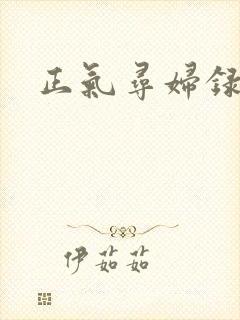 正氣尋婦録
伊茹茹